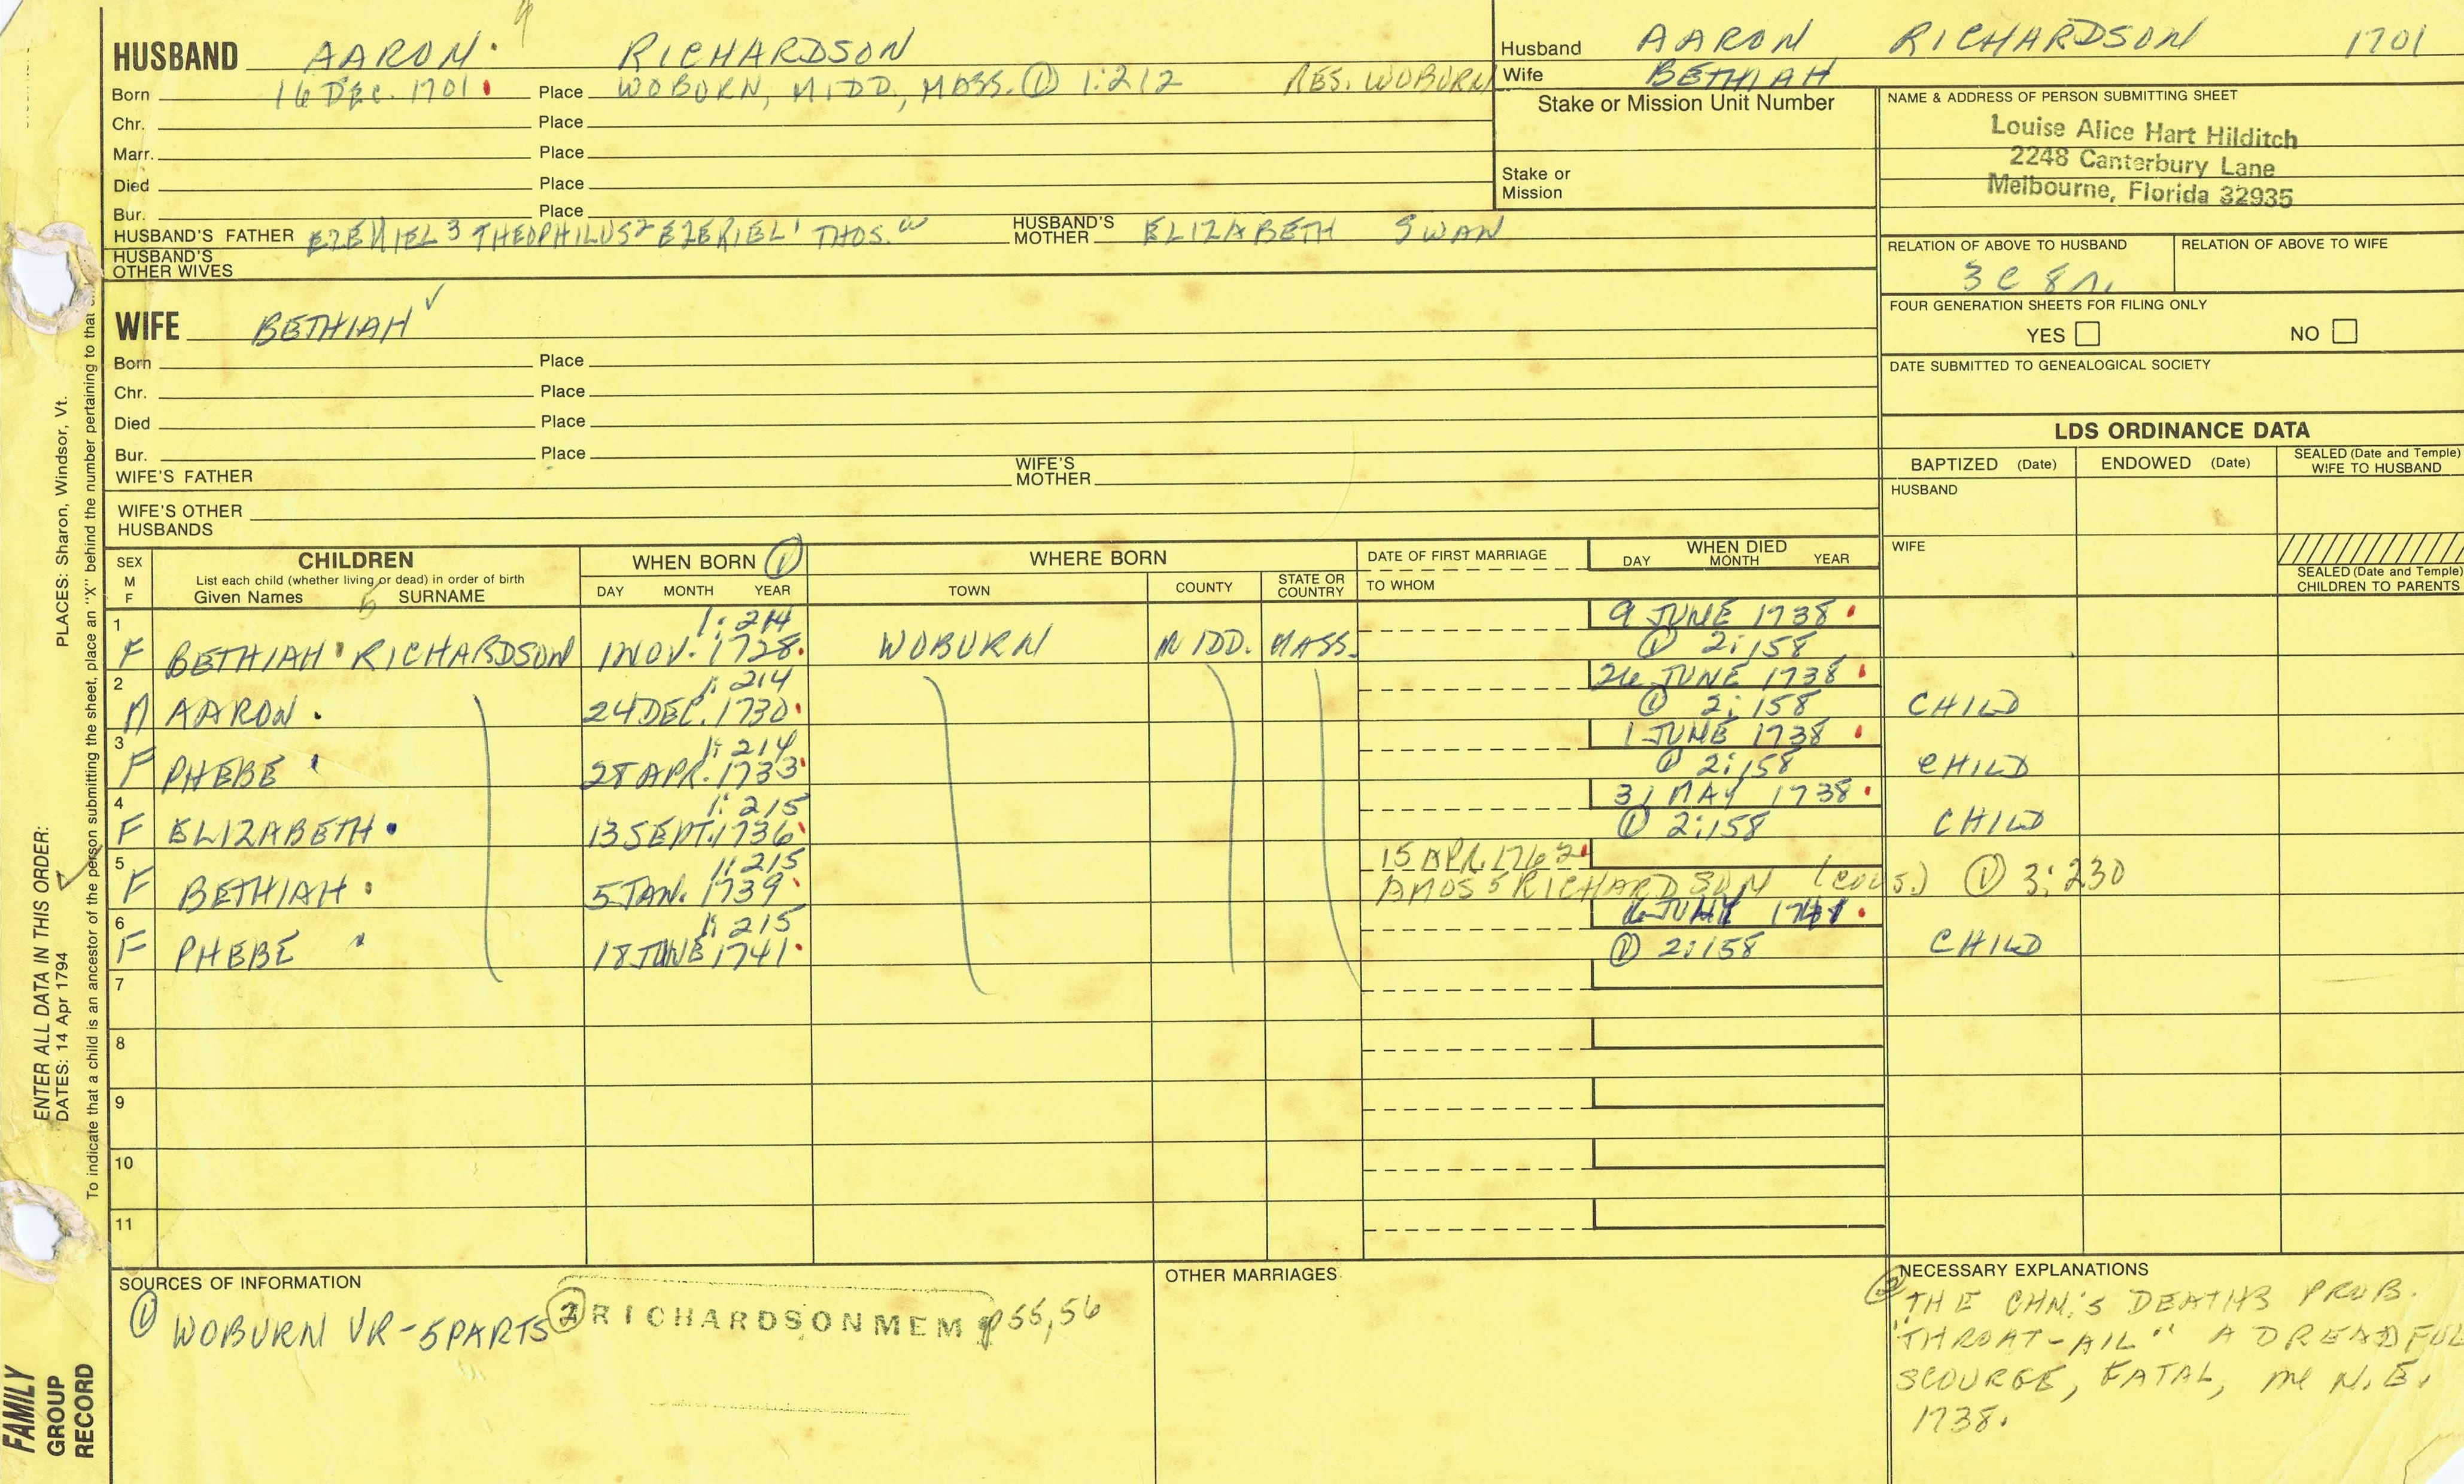 HUSBAND AARON 4 RICHARDSON
Born 16 DEC. 1701 Place WOBURN, MIDD., MASS. ① 1:212 RES. WOBURN
Chr. Place
Marr. Place
Died Place
Bur. Place
HUSBAND'S FATHER EZEKIEL 3 THEOPHILUS 2 EZEKIEL 1 THOS. HUSBAND'S MOTHER ELIZABETH SWAN
HUSBAND'S OTHER WIVES
Husband AARON RICHARDSON 1701
Wife BETHIAH
Stake or Mission Unit Number
Stake or Mission
NAME & ADDRESS OF PERSON SUBMITTING SHEET
Louise Alice Hart Hilditch
2248 Canterbury Lane
Melbourne, Florida 32935
RELATION OF ABOVE TO HUSBAND RELATION OF ABOVE TO WIFE
3 C 8 r.
FOUR GENERATION SHEETS FOR FILING ONLY
YES NO
DATE SUBMITTED TO GENEALOGICAL SOCIETY
WIFE BETHIAH ✓
Born Place
Chr. Place
Died Place
Bur. Place
WIFE'S FATHER WIFE'S MOTHER
WIFE'S OTHER HUSBANDS
LDS ORDINANCE DATA
BAPTIZED (Date) ENDOWED (Date) SEALED (Date and Temple) WIFE TO HUSBAND
HUSBAND
WIFE
SEALED (Date and Temple) CHILDREN TO PARENTS
SEX M F
CHILDREN
List each child (whether living or dead) in order of birth
Given Names 5 SURNAME
WHEN BORN ①
DAY MONTH YEAR
WHERE BORN
TOWN COUNTY STATE OR COUNTRY
DATE OF FIRST MARRIAGE
TO WHOM
WHEN DIED
DAY MONTH YEAR
1 1:214 9 JUNE 1738
F BETHIAH RICHARDSON 1 NOV. 1728 WOBURN MIDD. MASS. ① 2:158
2 1:214 26 JUNE 1738
M AARON 24 DEC. 1730 ① 2:158 CHILD
3 1:214 1 JUNE 1738
F PHEBE 28 APR. 1733 ① 2:158 CHILD
4 1:215 31 MAY 1738
F ELIZABETH 13 SEPT. 1736 ① 2:158 CHILD
5 1:215 15 APR. 1762
F BETHIAH 5 JAN. 1739 AMOS 5 RICHARDSON (COUS.) ① 3:230
6 1:215
F PHEBE 18 JUNE 1741 ① 2:158 CHILD
7
8
9
10
11
SOURCES OF INFORMATION
① WOBURN VR-5PARTS ② RICHARDSON MEM p 55,56
OTHER MARRIAGES
NECESSARY EXPLANATIONS
② THE CHN.'S DEATHS PROB.
"THROAT-AIL" A DREADFUL
SCOURGE, FATAL, in N.E.
1738.
ENTER ALL DATA IN THIS ORDER:
DATES: 14 Apr 1794 PLACES: Sharon, Windsor, Vt.
To indicate that a child is an ancestor of the person submitting the sheet, place an "X" behind the number pertaining to that
FAMILY
GROUP
RECORD